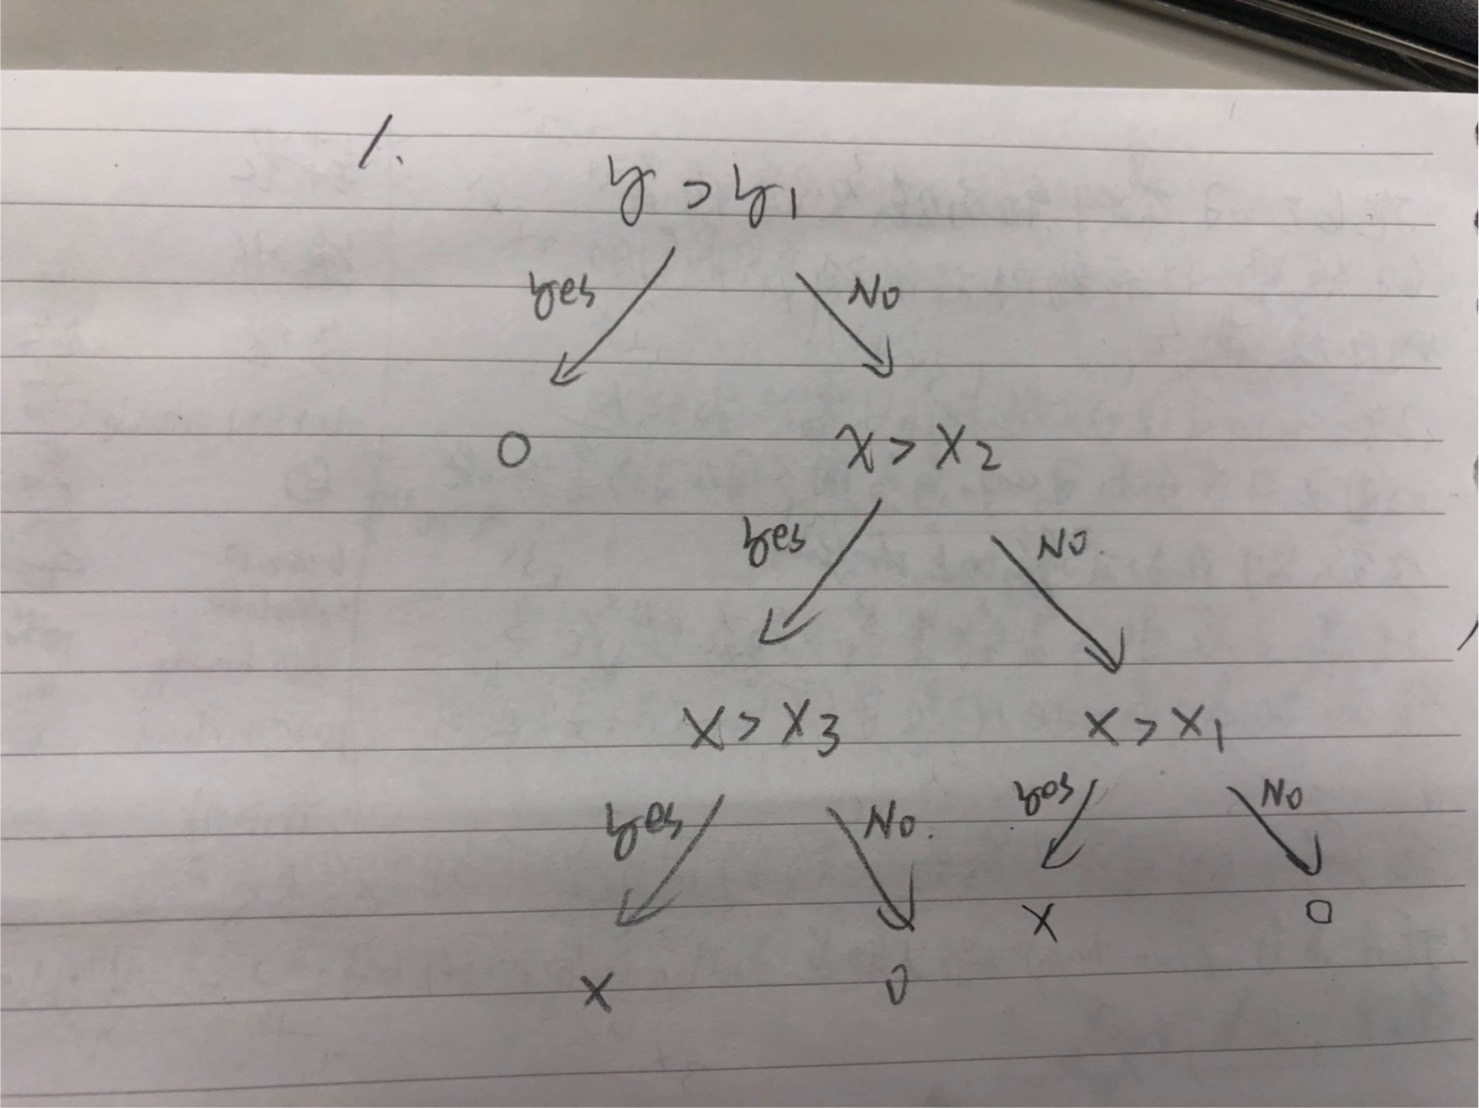 1.
y > y1
yes No
O x > x2
yes No.
x > x3 x > x1
yes No. yes No
x O
x O